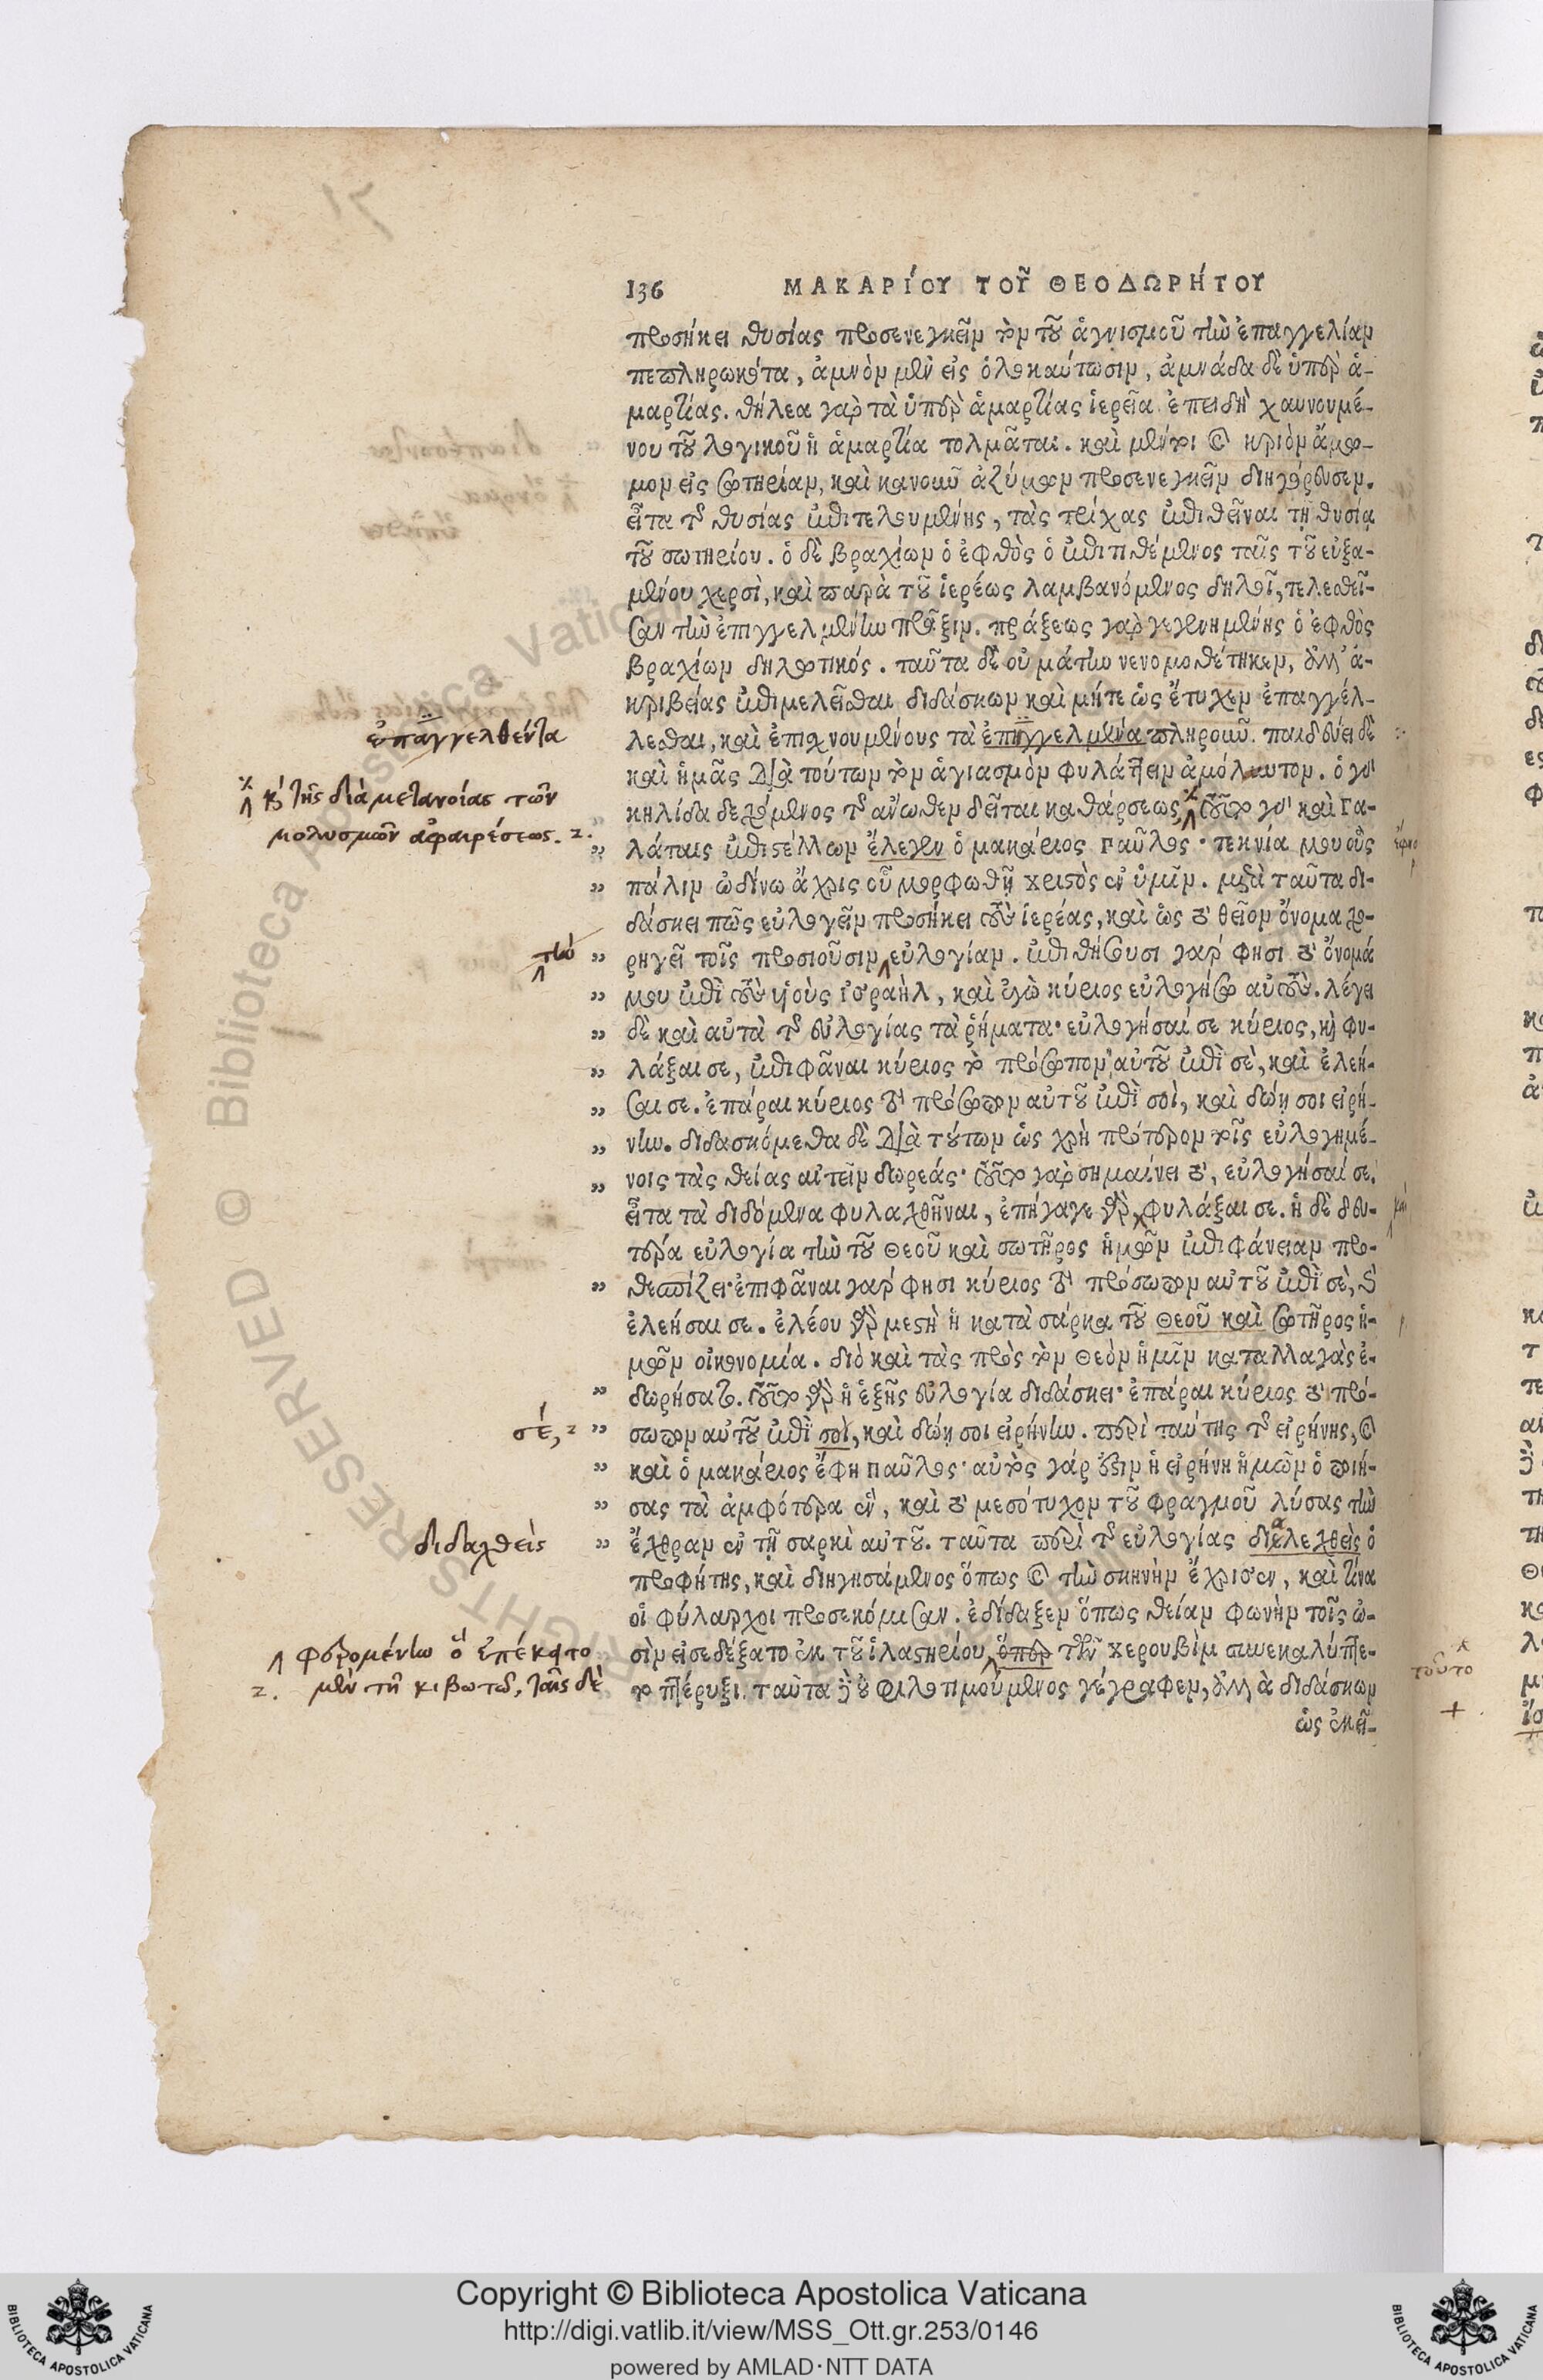 136 ΜΑΚΑΡίΟΥ ΤΟΥ͂ ΘΕΟΔΩΡΉΤΟΥ
προσήκει θυσίας προσενεγκεῖν τὸν τοῦ ἁγνισμοῦ τὴν ἐπαγγελίαν
πεπληρωκότα, ἀμνὸν μὲν εἰς ὁλοκαύτωσιν, ἀμνάδα δὲ ὑπὲρ ἁ-
μαρτίας. θήλεα γὰρ τὰ ὑπὲρ ἁμαρτίας ἱερεῖα. ἐπειδὴ χαυνουμέ-
νου τοῦ λογικοῦ ἡ ἁμαρτία τολμᾶται. καὶ μέντοι καὶ κριὸν ἄμω-
μον εἰς σωτηρίαν, καὶ κανοῦν ἀζύμων προσενεγκεῖν διηγόρευσεν.
εἶτα τῆς θυσίας ἐπιτελουμένης, τὰς τρίχας ἐπιθεῖναι τῇ θυσίᾳ
τοῦ σωτηρίου. ὁ δὲ βραχίων ὁ ἑφθὸς ὁ ἐπιτιθέμενος ταῖς τοῦ εὐξα-
μένου χερσὶ, καὶ παρὰ τοῦ ἱερέως λαμβανόμενος δηλοῖ, τελεσθεῖ-
σαν τὴν ἐπηγγελμένην πρᾶξιν. πράξεως γὰρ γεγενημένης ὁ ἑφθὸς
βραχίων δηλωτικός. ταῦτα δὲ οὐ μάτην νενομοθέτηκεν, ἀλλ' ἀ-
κριβείας ἐπιμελεῖσθαι διδάσκων καὶ μήτε ὡς ἔτυχεν ἐπαγγέλ-
ἐπαγγελθέντα
λεσθαι, καὶ ἐπισχνουμένους τὰ ἐπηγγελμένα πληροῦν. παιδεύει δὲ
καὶ ἡμᾶς διὰ τούτων τὸν ἁγιασμὸν φυλάττειν ἀμόλυντον. ὁ γὰρ
καὶ τῆς διὰ μετανοίας τῶν
κηλίδα δεχόμενος τῆς ἄνωθεν δεῖται καθάρσεως οὕτω γὰρ καὶ Γα-
μολυσμῶν ἀφαιρέσεως. 2.
" λάταις ἐπιστέλλων ἔλεγεν ὁ μακάριος Παῦλος· τεκνία μου οὓς
" πάλιν ὠδίνω ἄχρις οὗ μορφωθῇ Χριστὸς ἐν ὑμῖν. μετὰ ταῦτα δι-
δάσκει πῶς εὐλογεῖν προσήκει τοὺς ἱερέας, καὶ ὡς τὸ θεῖον ὄνομα χο-
τὴν
" ρηγεῖ τοῖς προσιοῦσιν εὐλογίαν. ἐπιθήσουσι γάρ φησι τὸ ὄνομά
" μου ἐπὶ τοὺς υἱοὺς ἰσραὴλ, καὶ ἐγὼ κύριος εὐλογήσω αὐτούς. λέγει
" δὲ καὶ αὐτὰ τῆς εὐλογίας τὰ ῥήματα· εὐλογήσαί σε κύριος, καὶ φυ-
" λάξαι σε, ἐπιφᾶναι κύριος τὸ πρόσωπον αὐτοῦ ἐπὶ σὲ, καὶ ἐλεή-
" σαι σε. ἐπάραι κύριος τὸ πρόσωπον αὐτοῦ ἐπὶ σοὶ, καὶ δώῃ σοι εἰρή-
" νην. διδασκόμεθα δὲ διὰ τούτων ὡς χρὴ πρότερον τοῖς εὐλογημέ-
" νοις τὰς θείας αἰτεῖν δωρεάς· οὕτω γὰρ σημαίνει τὸ, εὐλογήσαί σε.
εἶτα τὰ διδόμενα φυλαχθῆναι, ἐπήγαγε γὰρ, φυλάξαι σε. ἡ δὲ δευ-
τέρα εὐλογία τὴν τοῦ Θεοῦ καὶ σωτῆρος ἡμῶν ἐπιφάνειαν προ-
" θεσπίζει· ἐπιφᾶναι γάρ φησι κύριος τὸ πρόσωπον αὐτοῦ ἐπὶ σὲ, καὶ
ἐλεήσαι σε. ἐλέου γὰρ μεστὴ ἡ κατὰ σάρκα τοῦ Θεοῦ καὶ σωτῆρος ἡ-
μῶν οἰκονομία. διὸ καὶ τὰς πρὸς τὸν Θεὸν ἡμῖν καταλλαγὰς ἐ-
" δωρήσατο. οὕτω γὰρ ἡ ἑξῆς εὐλογία διδάσκει· ἐπάραι κύριος τὸ πρό-
σέ, 2
" σωπον αὐτοῦ ἐπὶ σοὶ, καὶ δώῃ σοι εἰρήνην. περὶ ταύτης τῆς εἰρήνης,
" καὶ ὁ μακάριος ἔφη Παῦλος· αὐτὸς γάρ ἐστιν ἡ εἰρήνη ἡμῶν ὁ ποιή-
" σας τὰ ἀμφότερα ἓν, καὶ τὸ μεσότυχον τοῦ φραγμοῦ λύσας τὴν
διδαχθεὶς
" ἔχθραν ἐν τῇ σαρκὶ αὐτοῦ. ταῦτα περὶ τῆς εὐλογίας διελεχθεὶς ὁ
προφήτης, καὶ διηγησάμενος ὅπως καὶ τὴν σκηνὴν ἔχρισεν, καὶ τίνα
οἱ φύλαρχοι προσεκόμισαν. ἐδίδαξεν ὅπως θείαν φωνὴν τοῖς ὠ-
φερομένην ὃ ἐπέκειτο
σὶν εἰσεδέξατο ἐκ τοῦ ἱλαστηρίου, ὅπερ τῶν χερουβὶμ συνεκαλύπτε-
2. μὲν τῇ κιβωτῷ, ταῖς δὲ
το πτέρυξι. ταῦτα οὐ φιλοτιμούμενος γέγραφεν, ἀλλὰ διδάσκων
ὡς ἐκεῖ-
Copyright © Biblioteca Apostolica Vaticana
http://digi.vatlib.it/view/MSS_Ott.gr.253/0146
powered by AMLAD·NTT DATA
BIBLIOTECA APOSTOLICA VATICANA
BIBLIOTECA APOSTOLICA VATICANA